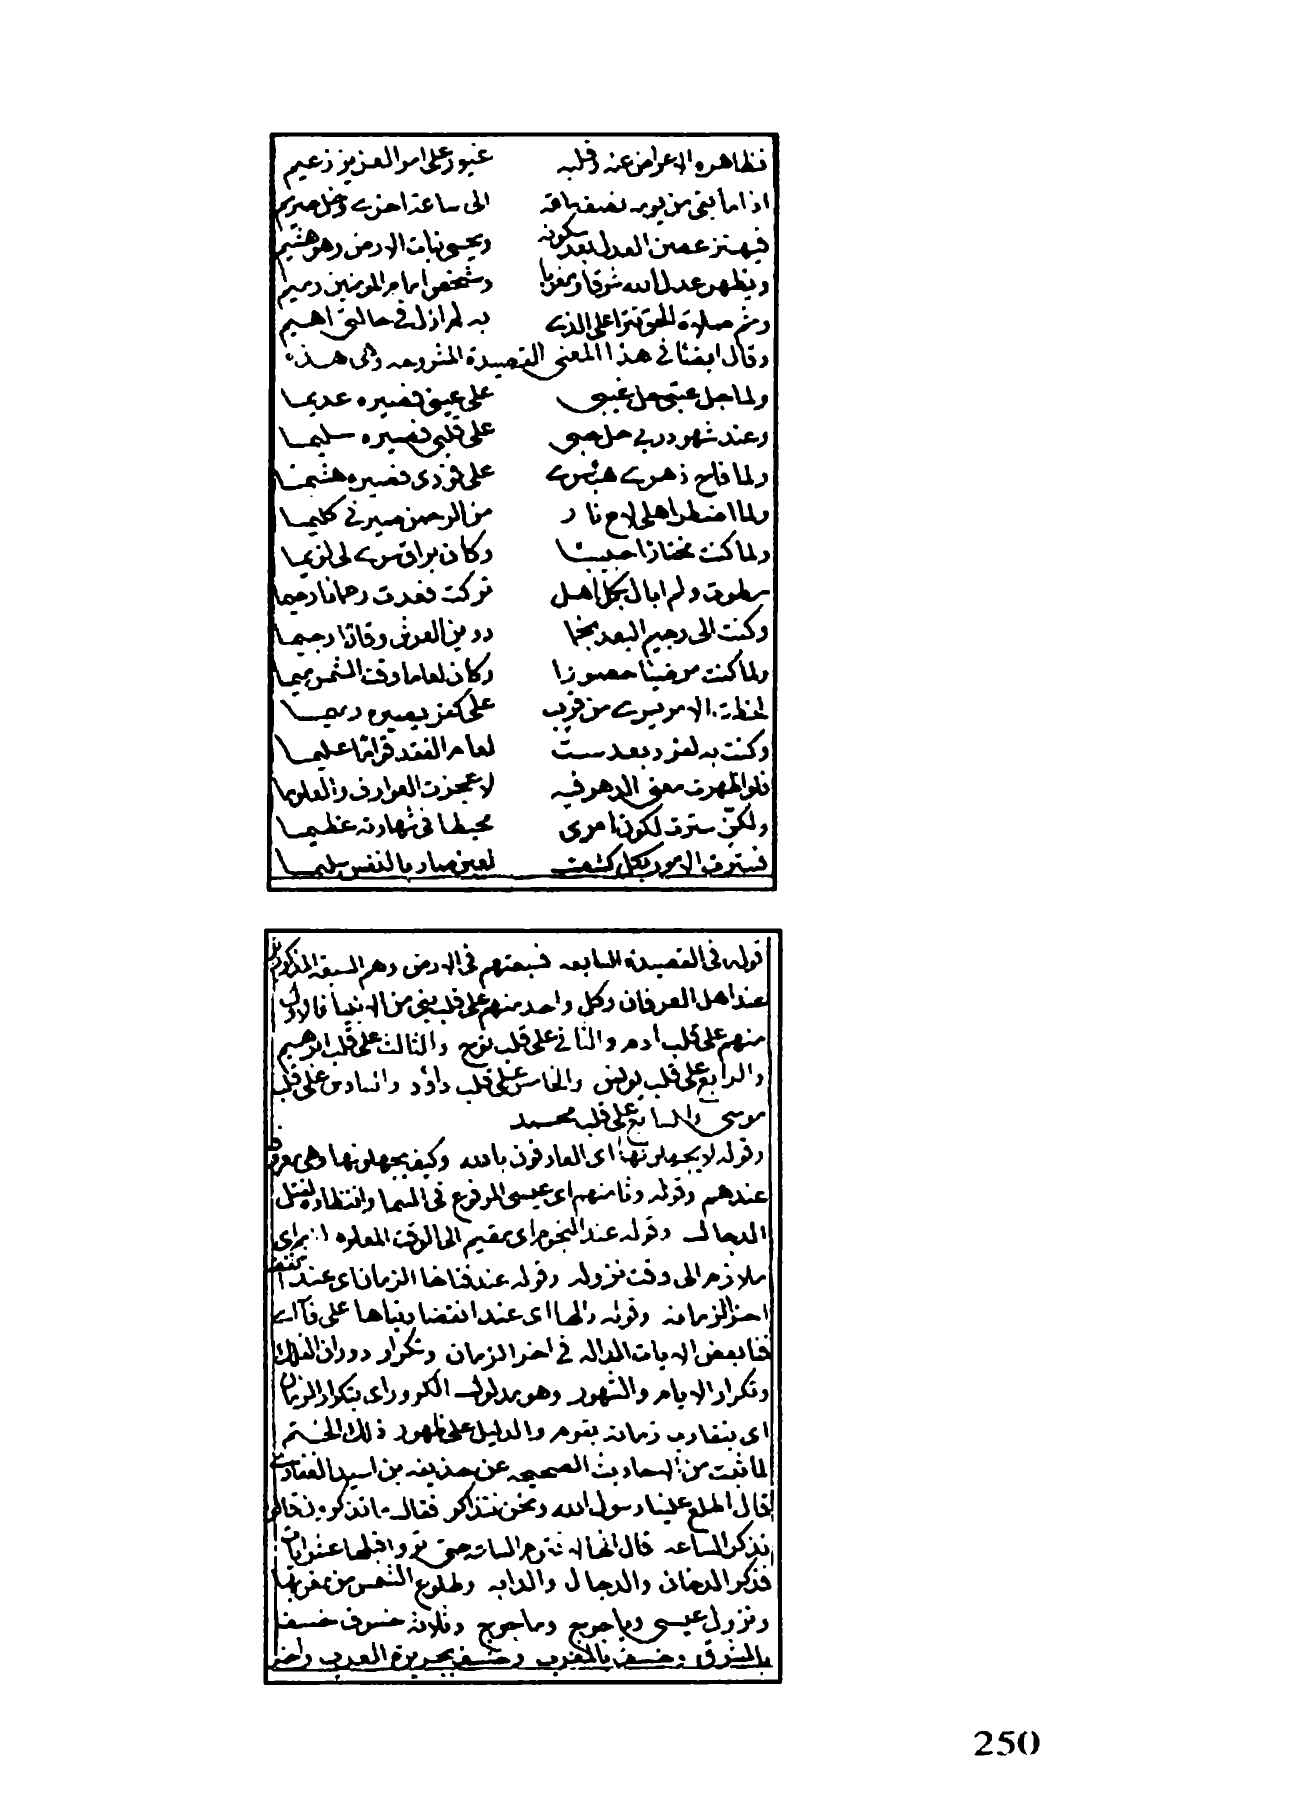 فظاهره الاعراض عنه وقلبه غيور على امر العزيز زعيم
اذا ما بقي من يومه نصف ساعة الى ساعة اخرى وحل صريم
فيهتز غصن العدل بعد سكونه ويحيي نبات الارض وهو هشيم
ويظهر عدل الله شرقا ومغربا وشخص امام المومنين رميم
وثم صلاة الحق تترا على الذي به لم ازل في حالتي اهيم
وقال ايضا في هذا المعنى القصيدة المشروحه وهي هذه
ولما جل عتبى حل غيبى على عيني فصيره عديما
وعند شهود ربي حل حبي على قلبي فصيره سليما
ولما فاح زهرى هب سرى على فصيره هشيما
ولما اضطر اهلي لاح نار من الرحمن صيرني كليما
ولما كنت مختارا حبيبا وكان براق سرى لي لزيما
سطوت ولم ابال بكل اهل تركت فعدت رحمانا رحيما
وكنت الى رجيم البعد نجما دوين العرش وقادا رجيما
ولما كنت مرضيا حصورا وكان لعاما وقت الشمس ميما
لحظت الامر يسرى من قريب على كفر يصيره رميما
وكنت به لفرد بعد ست لعام العقد قراما عليما
فلو اظهرت معنى الدهر فيه لاعجزت العوارف والعلوما
ولكن سترت لكون امرى محيطا في شهادته عظيما
فسترت الامور بكل كشف لعين صار بالنفس سليما
قوله في القصيدة السابعه فسبعتهم في الارض وهم السبعة المذكورين
عند اهل العرفان وكل واحد منهم على قلب نبي من الانبيا فالاول
منهم على قلب آدم والثاني على قلب نوح والثالث على قلب ابرهيم
والرابع على قلب يونس والخامس على قلب داؤد والسادس على قلب
موسى والسابع على قلب محمد
وقوله لا يجهلونها اى العارفون بالله وكيف يجهلونها وهي معروفة
عندهم وقوله وثامنهم اى عيسى المرفوع في السما وانتظاره لقتل
الدجال وقوله عند النجوم اى مقيم الى الوقت المعلوم اى
ملازم الى وقت نزوله وقوله عند فناها الزمان اى عند
اخر الزمان وقوله والها اى عند انقضا بناها على
فنا بعض الايات الداله في اخر الزمان وتكرار دوران الفلك
وتكرار الايام والشهور وهو مدلول الكرور اى بتكرار الزمان
اى بتقارب زمانه بقوم والدليل على ظهور ذلك الختم
لما ثبت من الاحاديث الصحيحه عن حذيفه بن اسيد الغفارى
قال اطلع علينا رسول الله ونحن نتذاكر فقال ما تذكرون قالو
نذكر الساعه قال انها لا تقوم الساعه حتى تروا قبلها عشر ايات
فذكر الدخان والدجال والدابه وطلوع الشمس من مغربها
ونزول عيسى وياجوج وماجوج وثلاثة خسوف خسف
بالمشرق وخسف بالمغرب وخسف بجزيرة العرب واخر
250